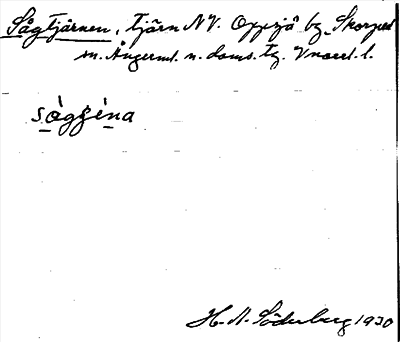 Sågtjärnen, tjärn NV. Oppsjö by Skorped
sn. Ångerml. n. doms. tg. Vnorrl. l.
sågʒèna
H. A. Söderberg 1930